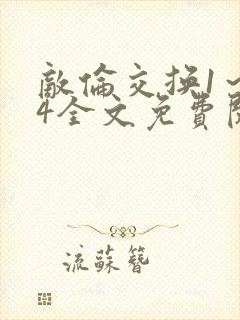 敵倫交换1～
4全文免費閱
流蘇簪